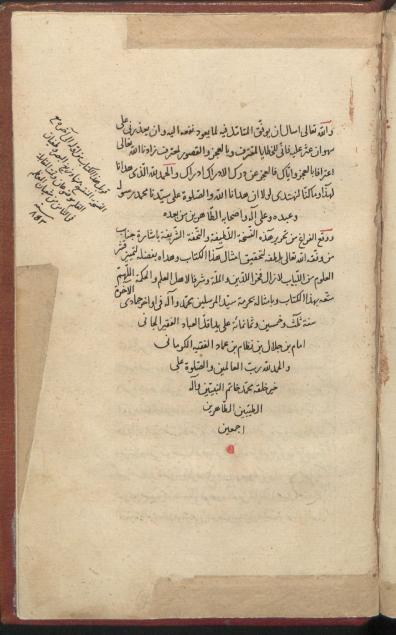 والله تعالى اسال ان يوفق المتامل فيه لما يعود نفعه اليه وان يعذرنى على
سهو ان عثر عليه فانى للخطايا مقترف وبالعجز والقصور لمعترف زادنا الله تعالى
اعترافا بالعجز واياكم فالعجز عن درك الادراك ادراك والحمد لله الذى هدانا
لهذا وما كنا لنهتدى لولا ان هدانا الله والصلوة على سيدنا محمد رسوله
وعبده وعلى آله واصحابه الطاهرين من بعده
ووقع الفراغ من تحرير هذه النسخة اللطيفة والتحفة الشريفة باشارة جناب
من وفقه الله تعالى بلطفه لتحقيق امثال هذا الكتاب وهداه بفضله لتمييز قشر
العلوم من اللباب لازال فخرا للدين والملة وشرفا لاهل العلم والحكمة اللهم
متعه بهذا الكتاب وبامثاله بحرمة سيد المرسلين محمد وآله فى اواخر جمادى الآخرة
سنة ثلث وخمسين وثمانمائة على يد اقل العباد الفقير الجانى
امام بن جلال بن نظام بن عماد الفقيه الكرمانى
والحمد لله رب العالمين والصلوة على
خير خلقه محمد خاتم النبيين وآله
الطيبين الطاهرين
اجمعين
قوبل هذا الكتاب من اوله الى آخره مع
النسخة
من شعبان
سنة ٨٥٣